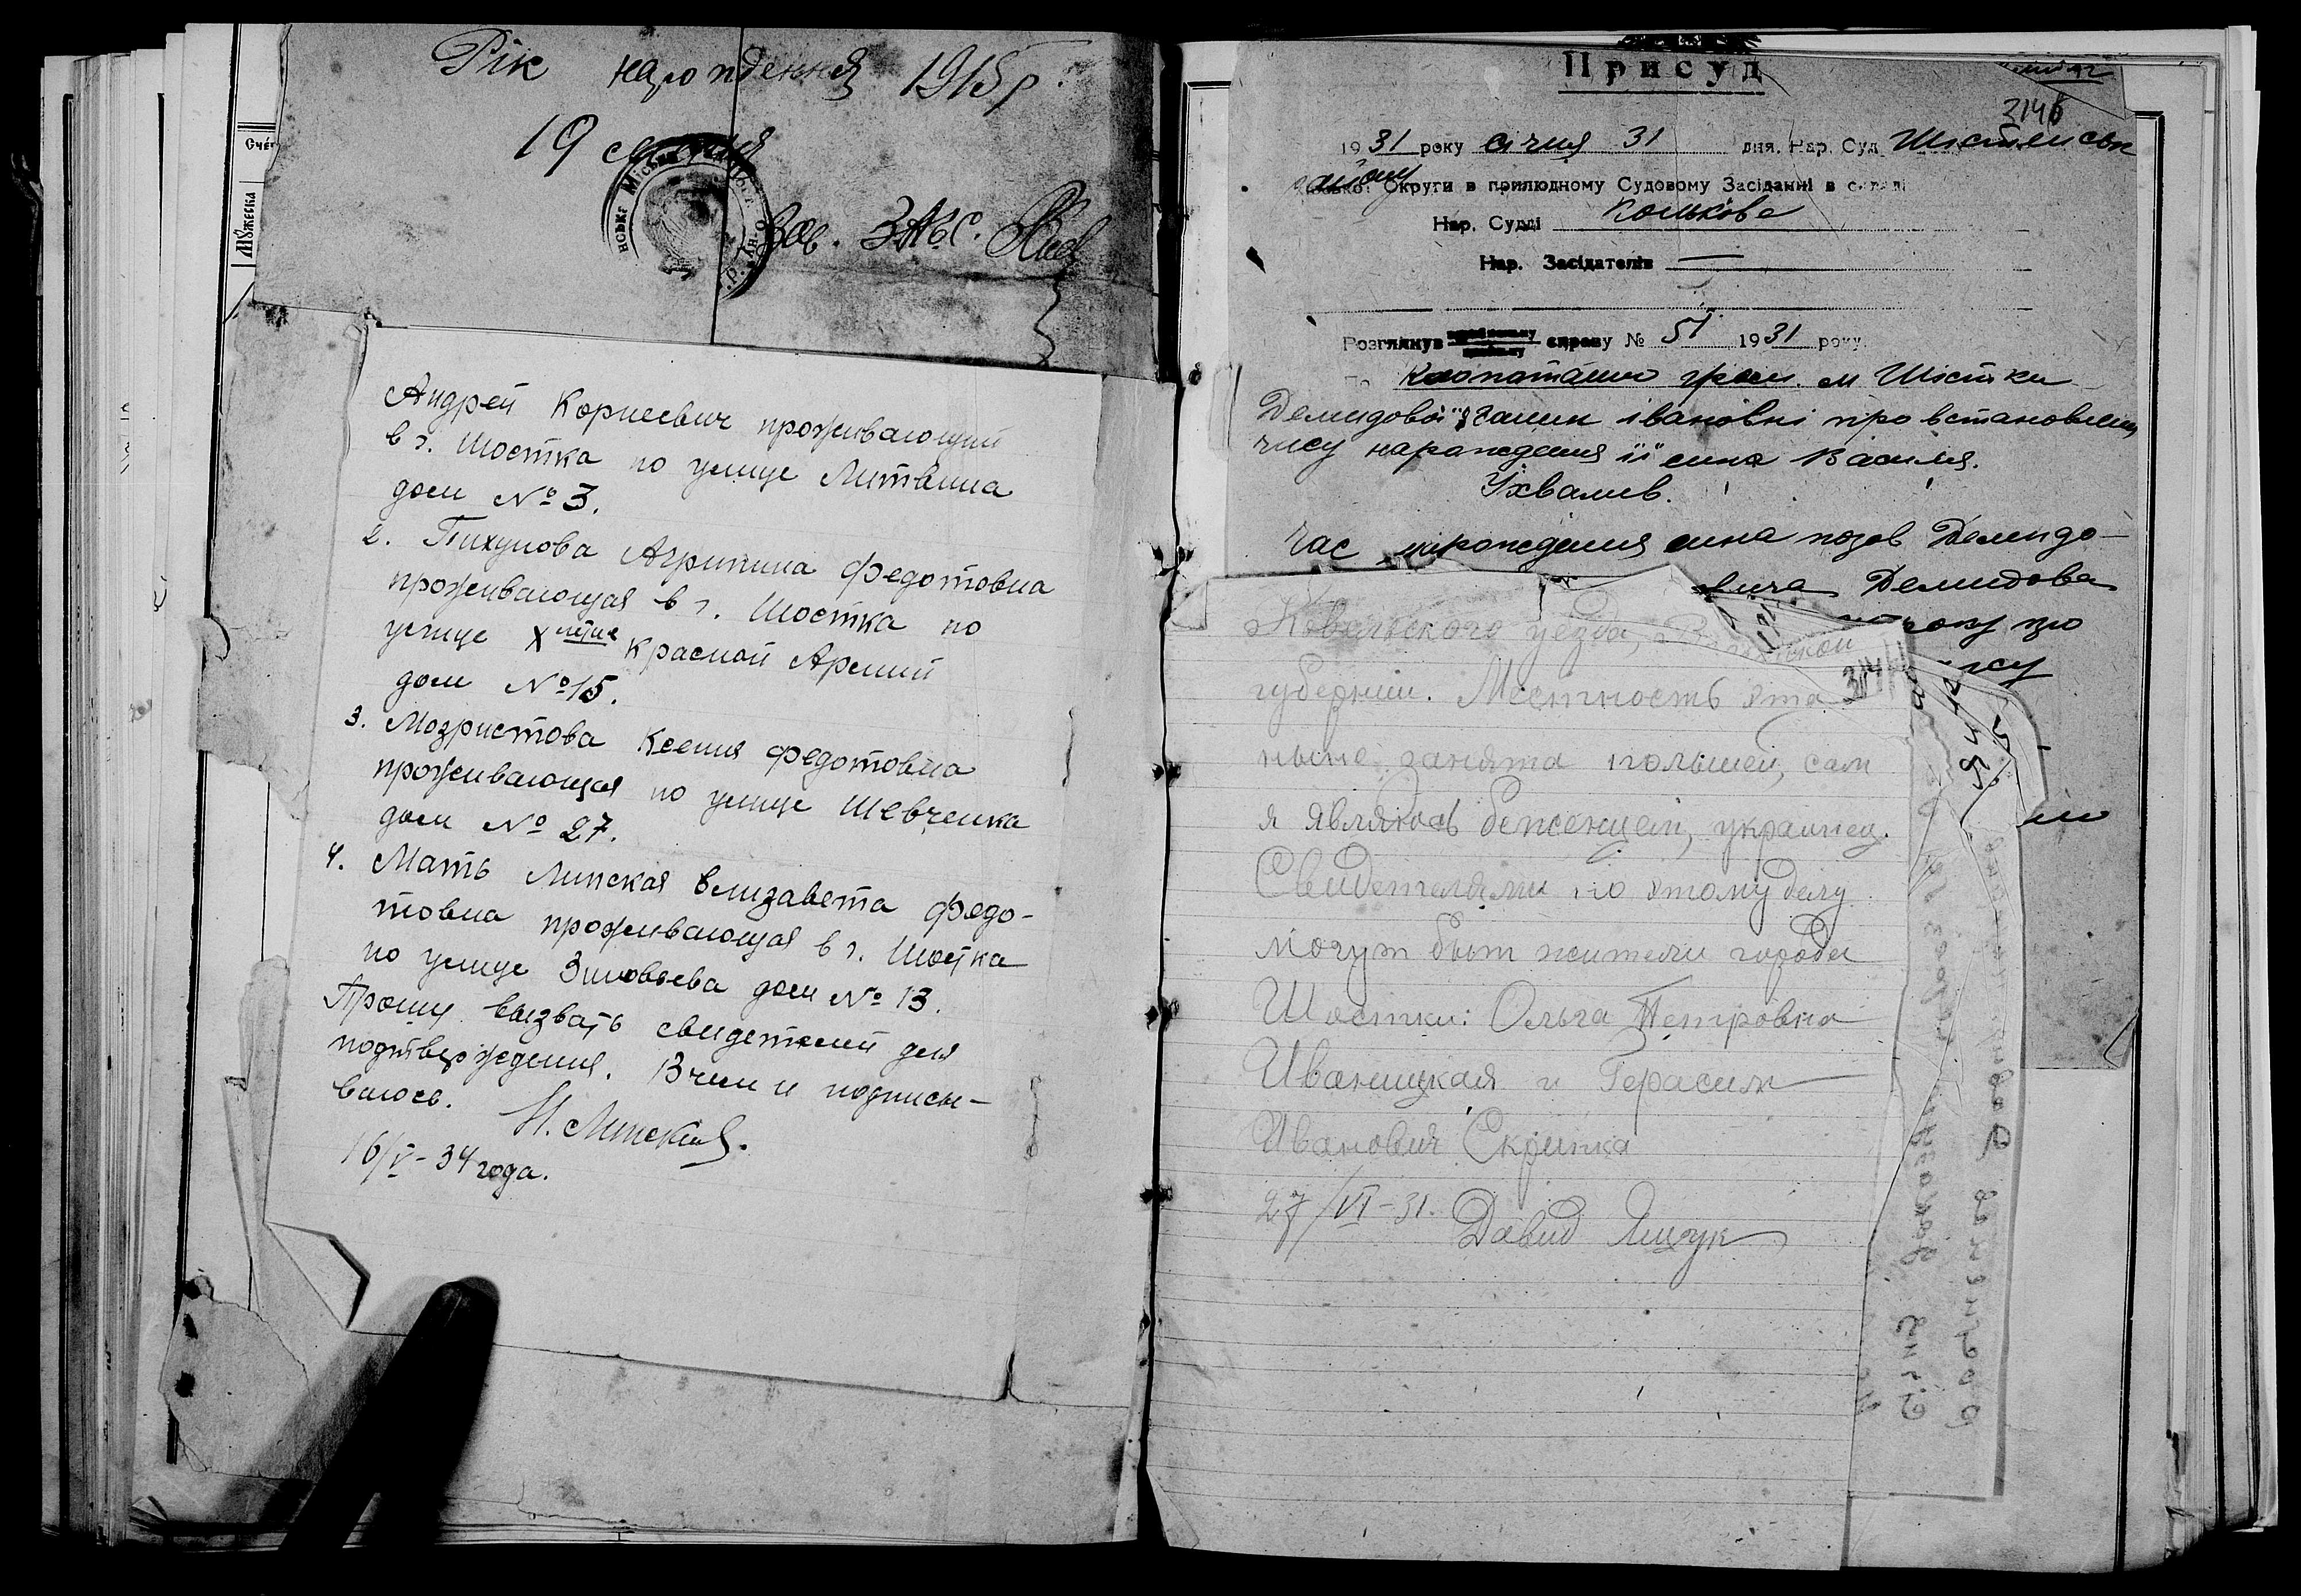 Рік народження 1915 р.
19 січня
Зав. ЗАГС.
Счет
Мужеска
Андрей Корнеевич проживающий
в г. Шостка по улице Литвина
дом № 3.
2. Тихунова Агрипина Федотовна
проживающая в г. Шостка по
улице X летие Красной Армии
дом № 15.
3. Ксения Федотовна
проживающая по улице Шевченка
дом № 27.
4. Мать Липская Елизавета Федо-
товна проживающая в г. Шостка
по улице Зиновьева дом № 13.
Прошу вызвать свидетелей для
подтверждения. В чем и подписы-
ваюсь. Н. Липский.
16/V-34 года.
Присуд
214б
1931 року січня 31 дня. Нар. Суд Шостенськ
району Округи в прилюдному Судовому Засіданні в складі
Нар. Судді
Нар. Засідателів
Розглянув справу № 51 1931 року.
По клопотанню гром. м Шостки
Демидової Ганни Івановні про встановлення
часу народження її сина Василя.
Ухвалив.
Час народження сина позов Демидо-
вича Демидова
року що
Ковельского уезда,
губернии. Местность эта
ныне занята Польшей, сам
я являюсь беженцем, украинец.
Свидетелями по этому делу
могут быт жители города
Шостки: Ольга Петровна
Иваницкая и Герасим
Иванович Скрипка
27/VI-31. Давид Ящук